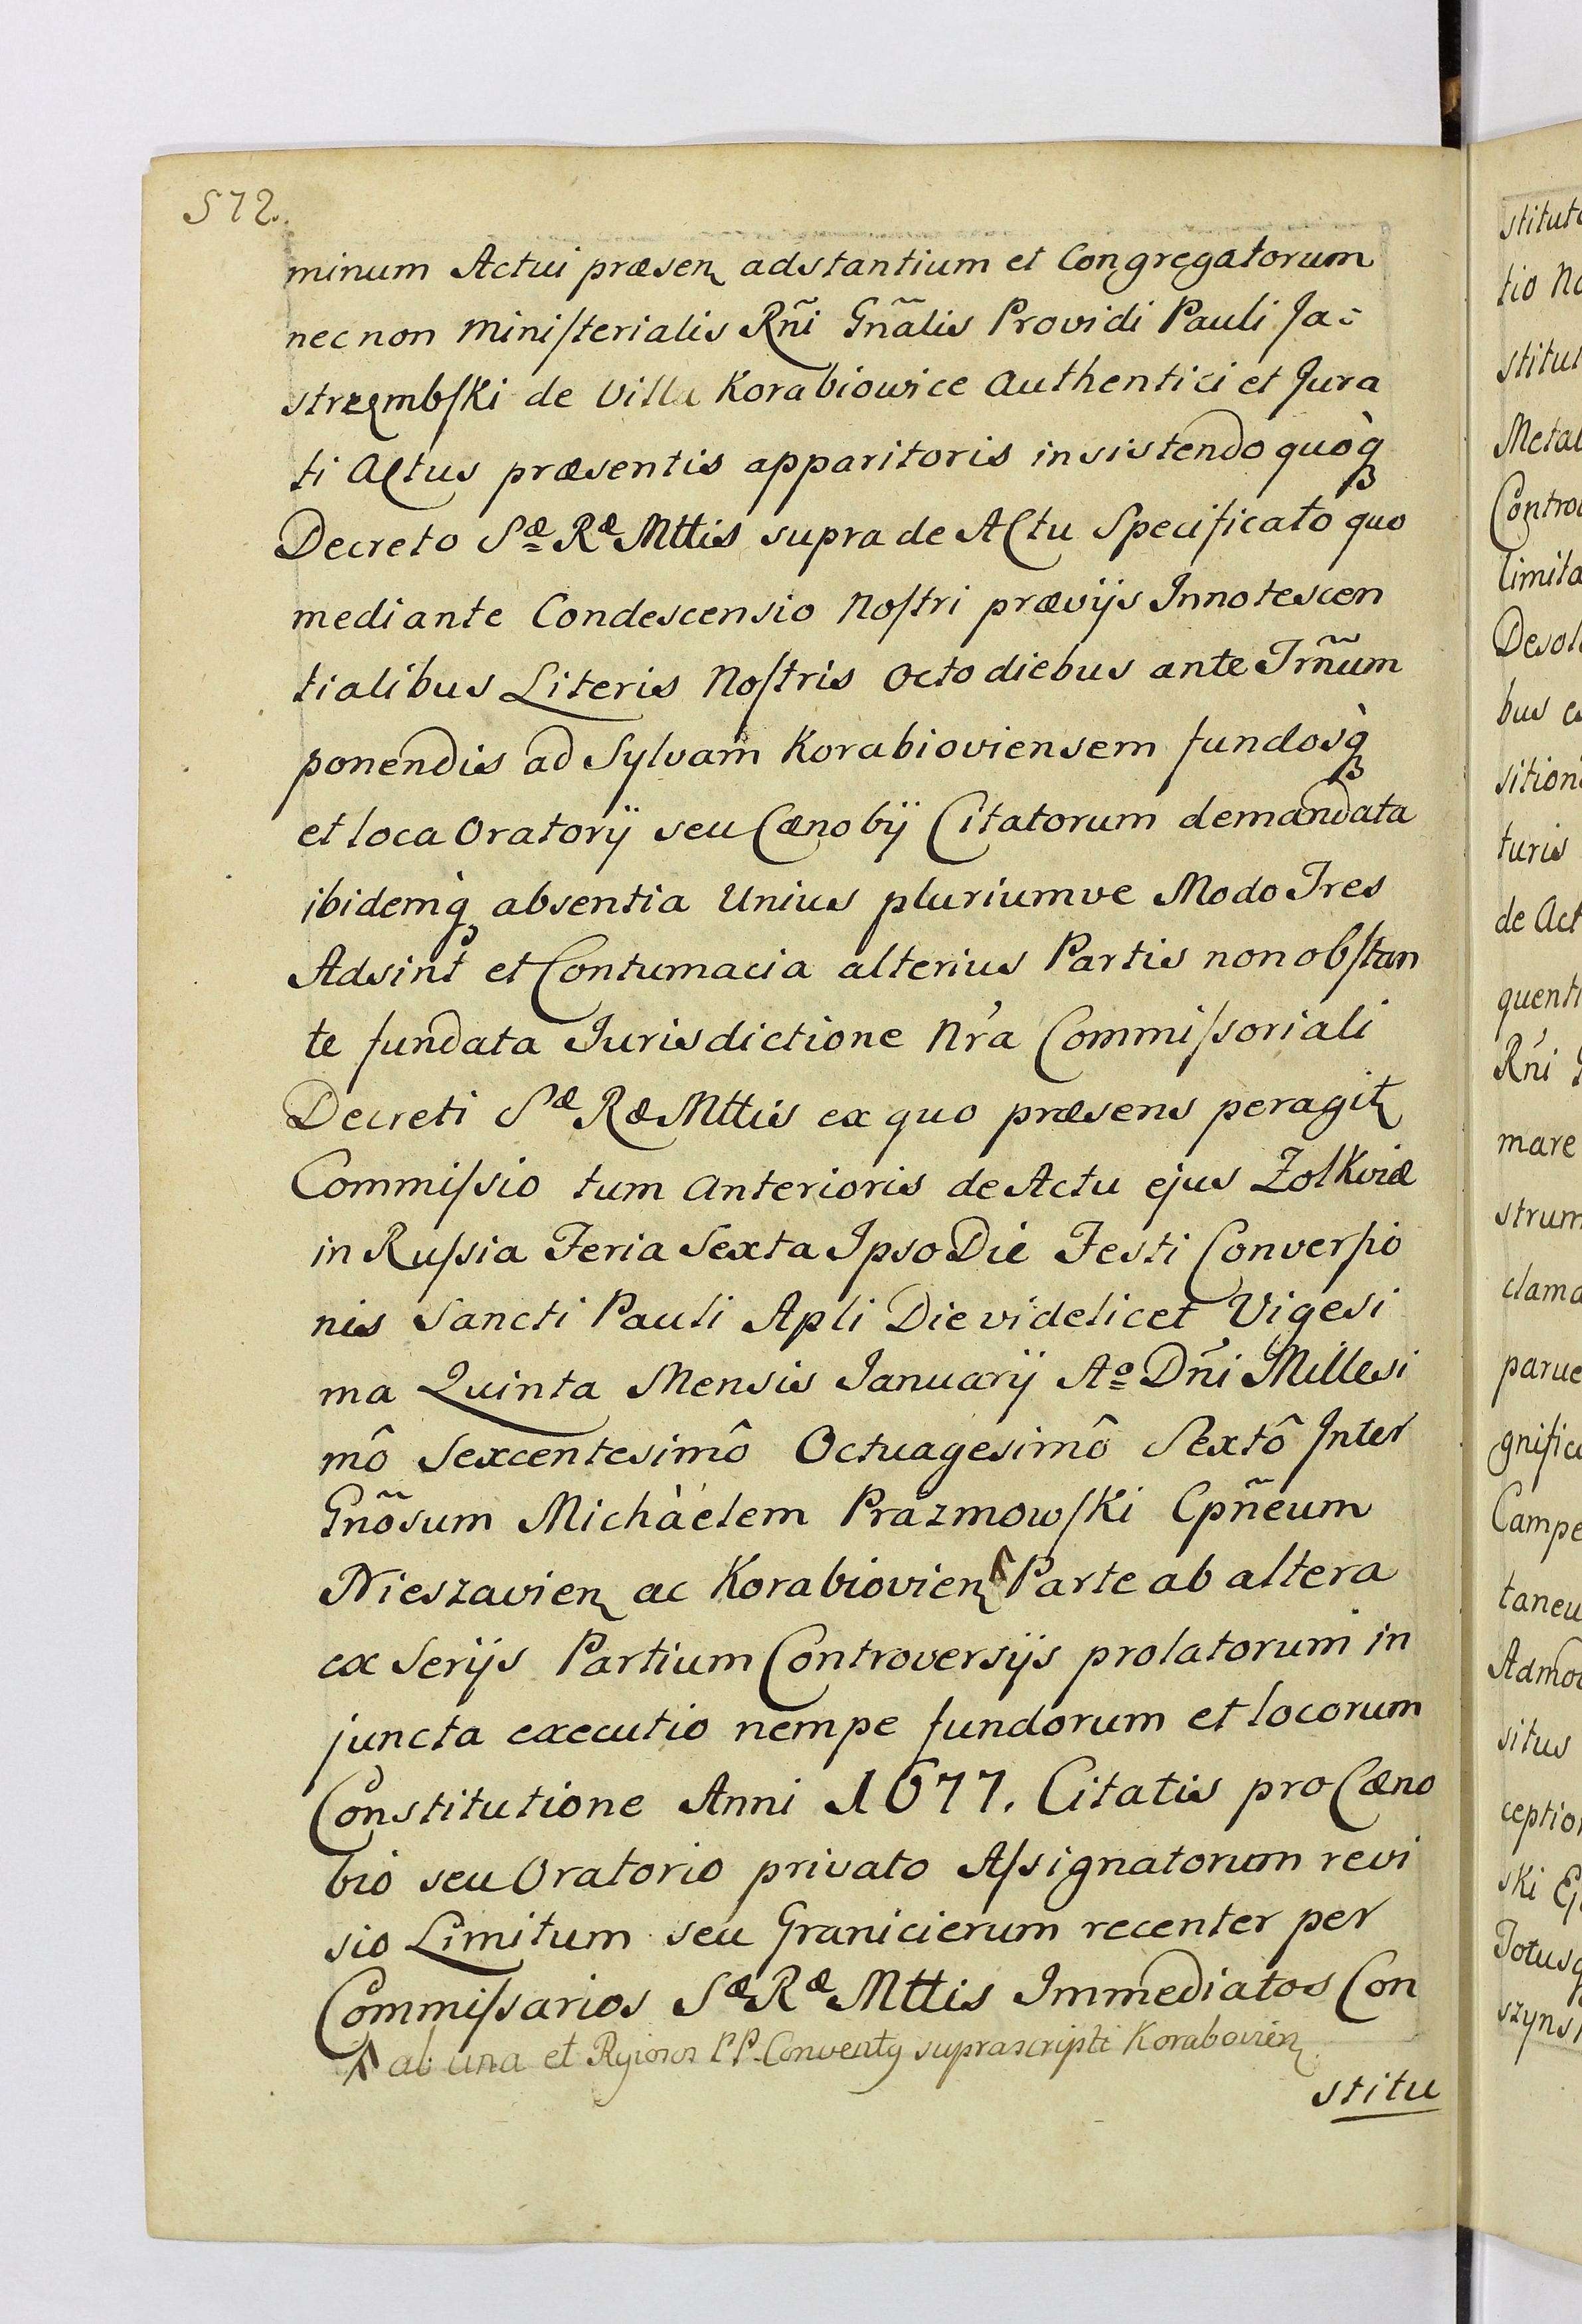 572.
minum Actui præsen adstantium et Congregatorum
nec non ministerialis Rñi Gñalis Providi Pauli Ja=
strzęmbſki de Villa Korabiowice Authentici et Jura
ti Actus præsentis apparitoris insistendo quòqꝫ
Decreto Sæ Ræ Mttis supra de Actu Specificato quo
mediante Condescensio Noſtri prævijs Innotescen
tialibus Literis Noſtris Octo diebus ante Trñum
ponendis ad Sylvam Korabioviensem fundosqꝫ
et loca Oratorij seu Cænobij Citatorum demandata
ibidemqꝫ absentia Unius pluriumve Modo Tres
Adsint et Contumacia alterius Partis non obſtan
te fundata Jurisdictione Nr̃a Commiſsoriali
Decreti Sæ Ræ Mttis ex quo præsens peragit
Commiſsio tum Anterioris de Actu ejus Zolkviæ
in Ruſsia Feria Sexta Ipso Die Festi Converſio
nis Sancti Pauli Apli Die videlicet Vigesi
ma Quinta Mensis Januarij Aº Dñi Millesi
mô Sexcentesimô Octuagesimô Sextô Inter
Gñosum Michàelem Prazmowſki Cpñeum
Nieszavien ac Korabiovien ^ Parte ab altera
ex Serijs Partium Controversijs prolatorum in
juncta executio nempe fundorum et locorum
Constitutione Anni 1677. Citatis pro Cæno
bio seu Oratorio privato Aſsignatorum revi
sio Limitum seu Granicierum recenter per
Commiſsarios Sæ Ræ Mttis Immediatos Con
^ ab una et Rgiosos PP. Conventg suprascripti Korabovien
stitu
tio
stitu
limita
bus
turis
de Act
mare
strum
clama
situs